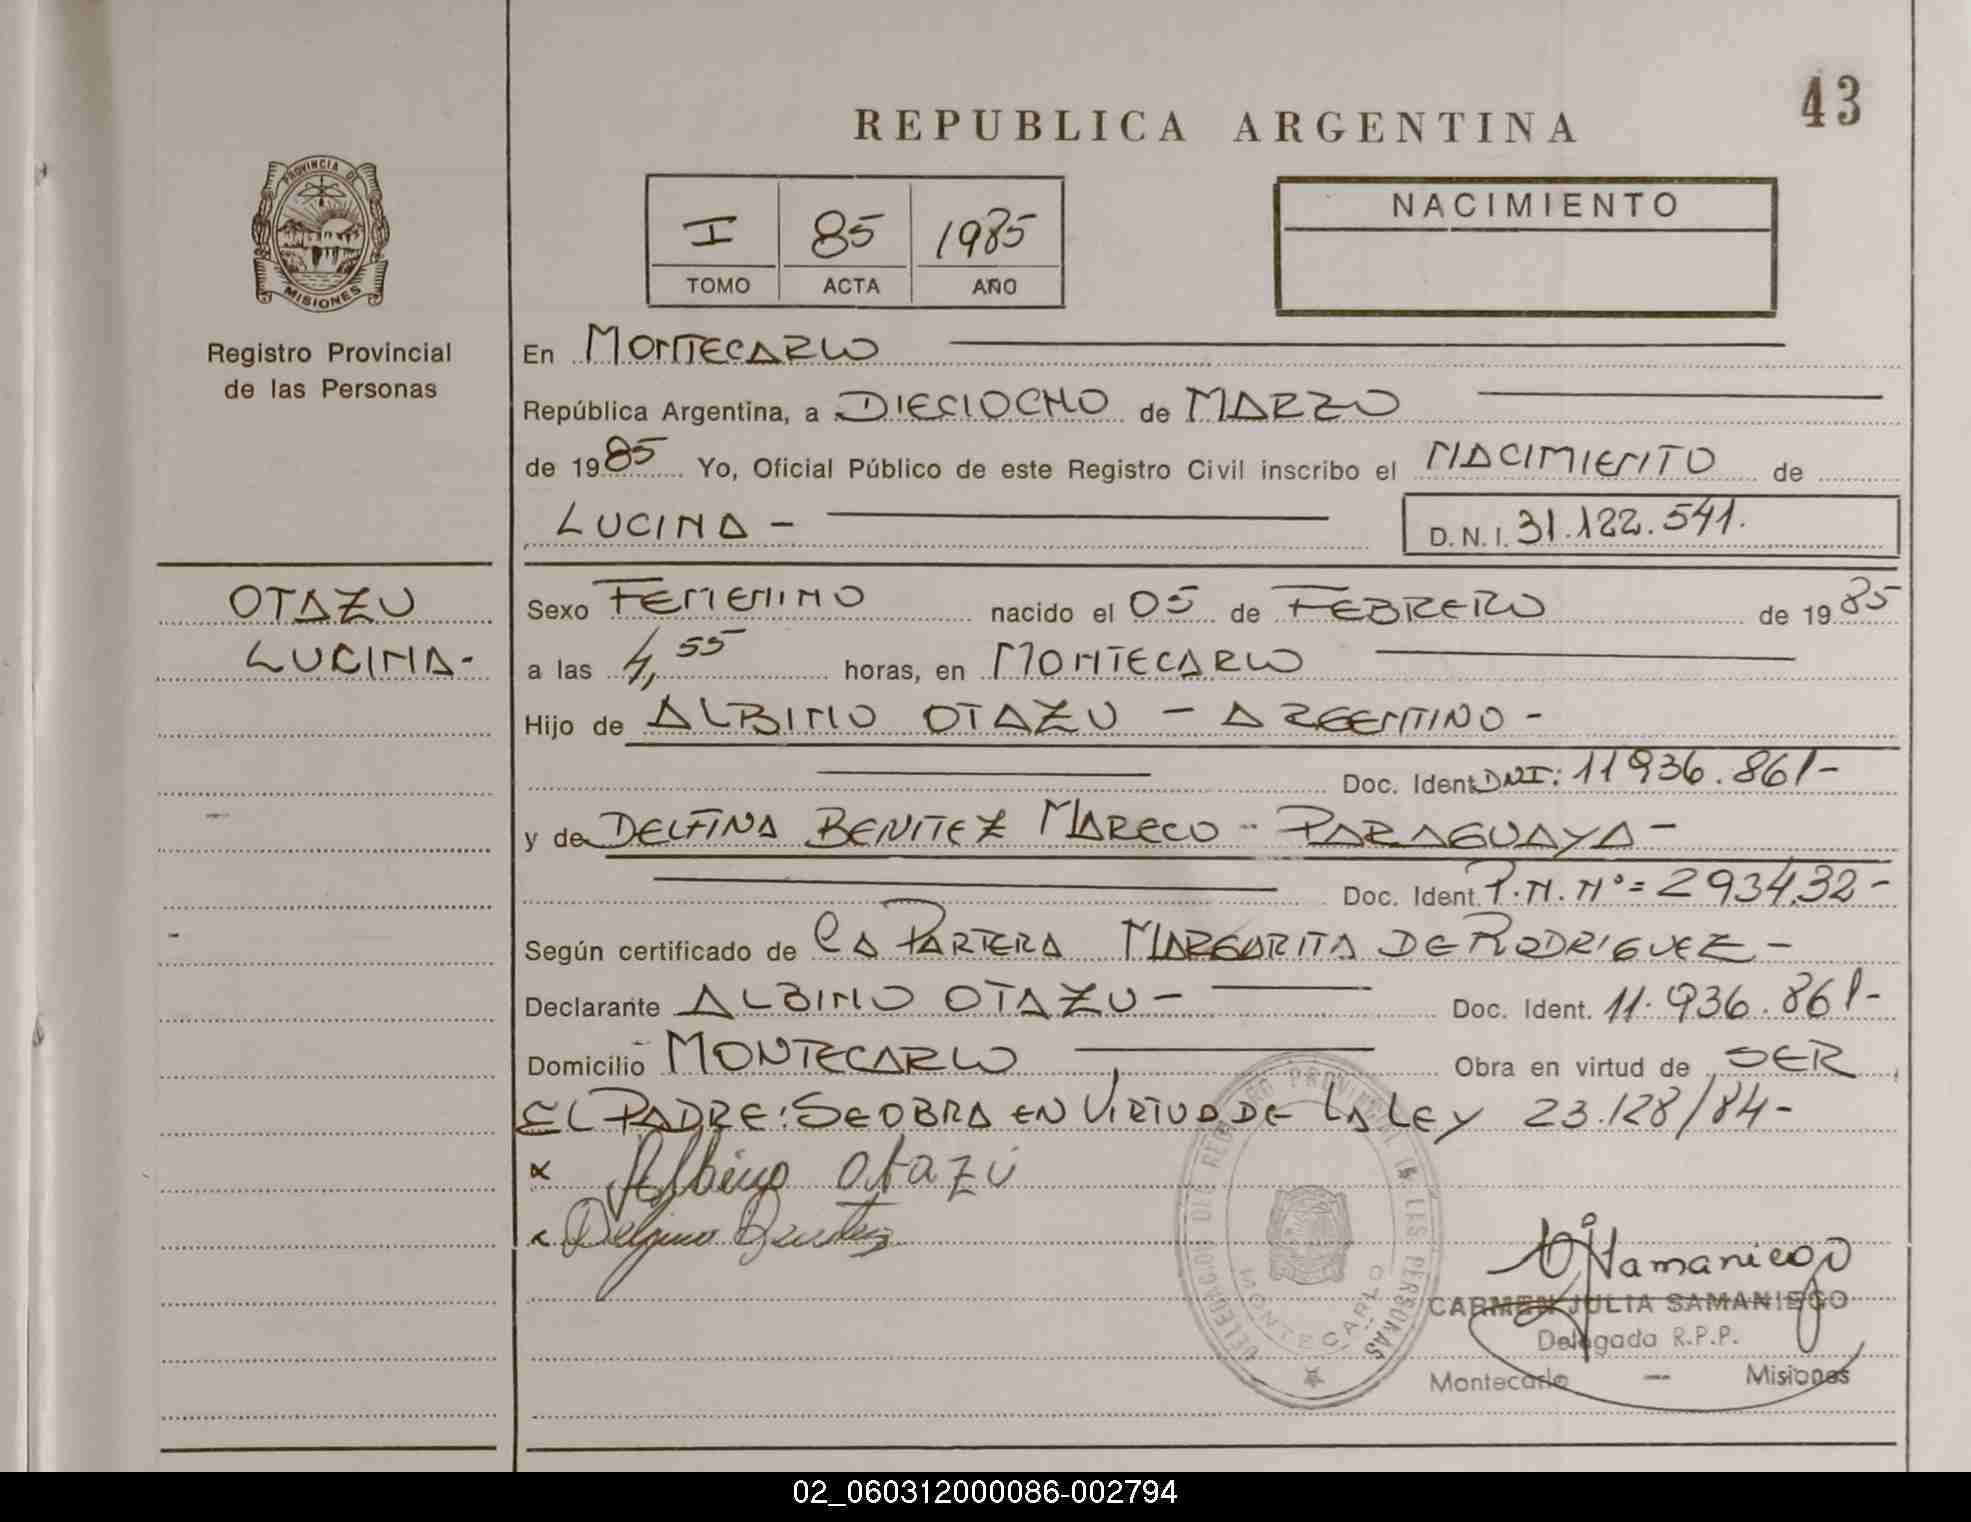 43
REPUBLICA ARGENTINA
PROVINCIA DE
MISIONES
Registro Provincial
de las Personas
I 85 1985
TOMO ACTA AÑO
NACIMIENTO
En MONTECARLO
República Argentina, a DIECIOCHO de MARZO
de 1985 Yo, Oficial Público de este Registro Civil inscribo el NACIMIENTO de
LUCINA - D.N.I. 31.122.541.
OTAZU
LUCINA-
Sexo FEMENINO nacido el 05 de FEBRERO de 1985
a las 4,55 horas, en MONTECARLO
Hijo de ALBINO OTAZU - ARGENTINO -
Doc. Ident. DNI: 11936.861-
y de DELFINA BENITEZ MARECO - PARAGUAYA -
Doc. Ident. P.N. Nº= 293432-
Según certificado de LA PARTERA MARGARITA DE RODRIGUEZ -
Declarante ALBINO OTAZU - Doc. Ident. 11.936.861-
Domicilio MONTECARLO Obra en virtud de SER
EL PADRE: SE OBRA EN VIRTUD DE LA LEY 23.128/84-
x Albino Otazú
x Delfina Benitez
DELEGACION DEL REGISTRO PROVINCIAL DE LES PERSONAS
MONTECARLO
CJSamaniego
CARMEN JULIA SAMANIEGO
Delegada R.P.P.
Montecarlo — Misiones
02_060312000086-002794